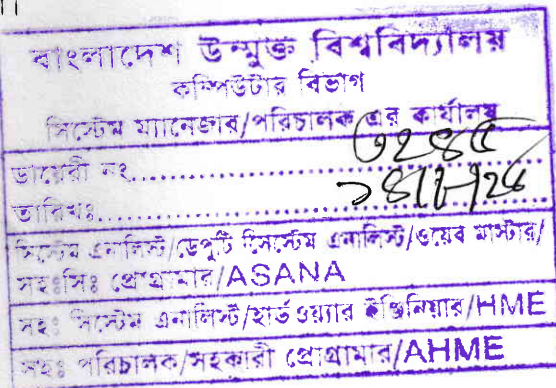 বাংলাদেশ উন্মুক্ত বিশ্ববিদ্যালয়
কম্পিউটার বিভাগ
সিস্টেম ম্যানেজার/পরিচালক এর কার্যালয়
ডায়েরী নং..............
তারিখঃ..............
সিস্টেম এনালিস্ট/ডেপুটি সিস্টেম এনালিস্ট/ওয়েব মাস্টার/
সহঃসিঃ প্রোগ্রামার/ASANA
সহঃ সিস্টেম এনালিস্ট/হার্ডওয়্যার ইঞ্জিনিয়ার/HME
সহঃ পরিচালক/সহকারী প্রোগ্রামার/AHME